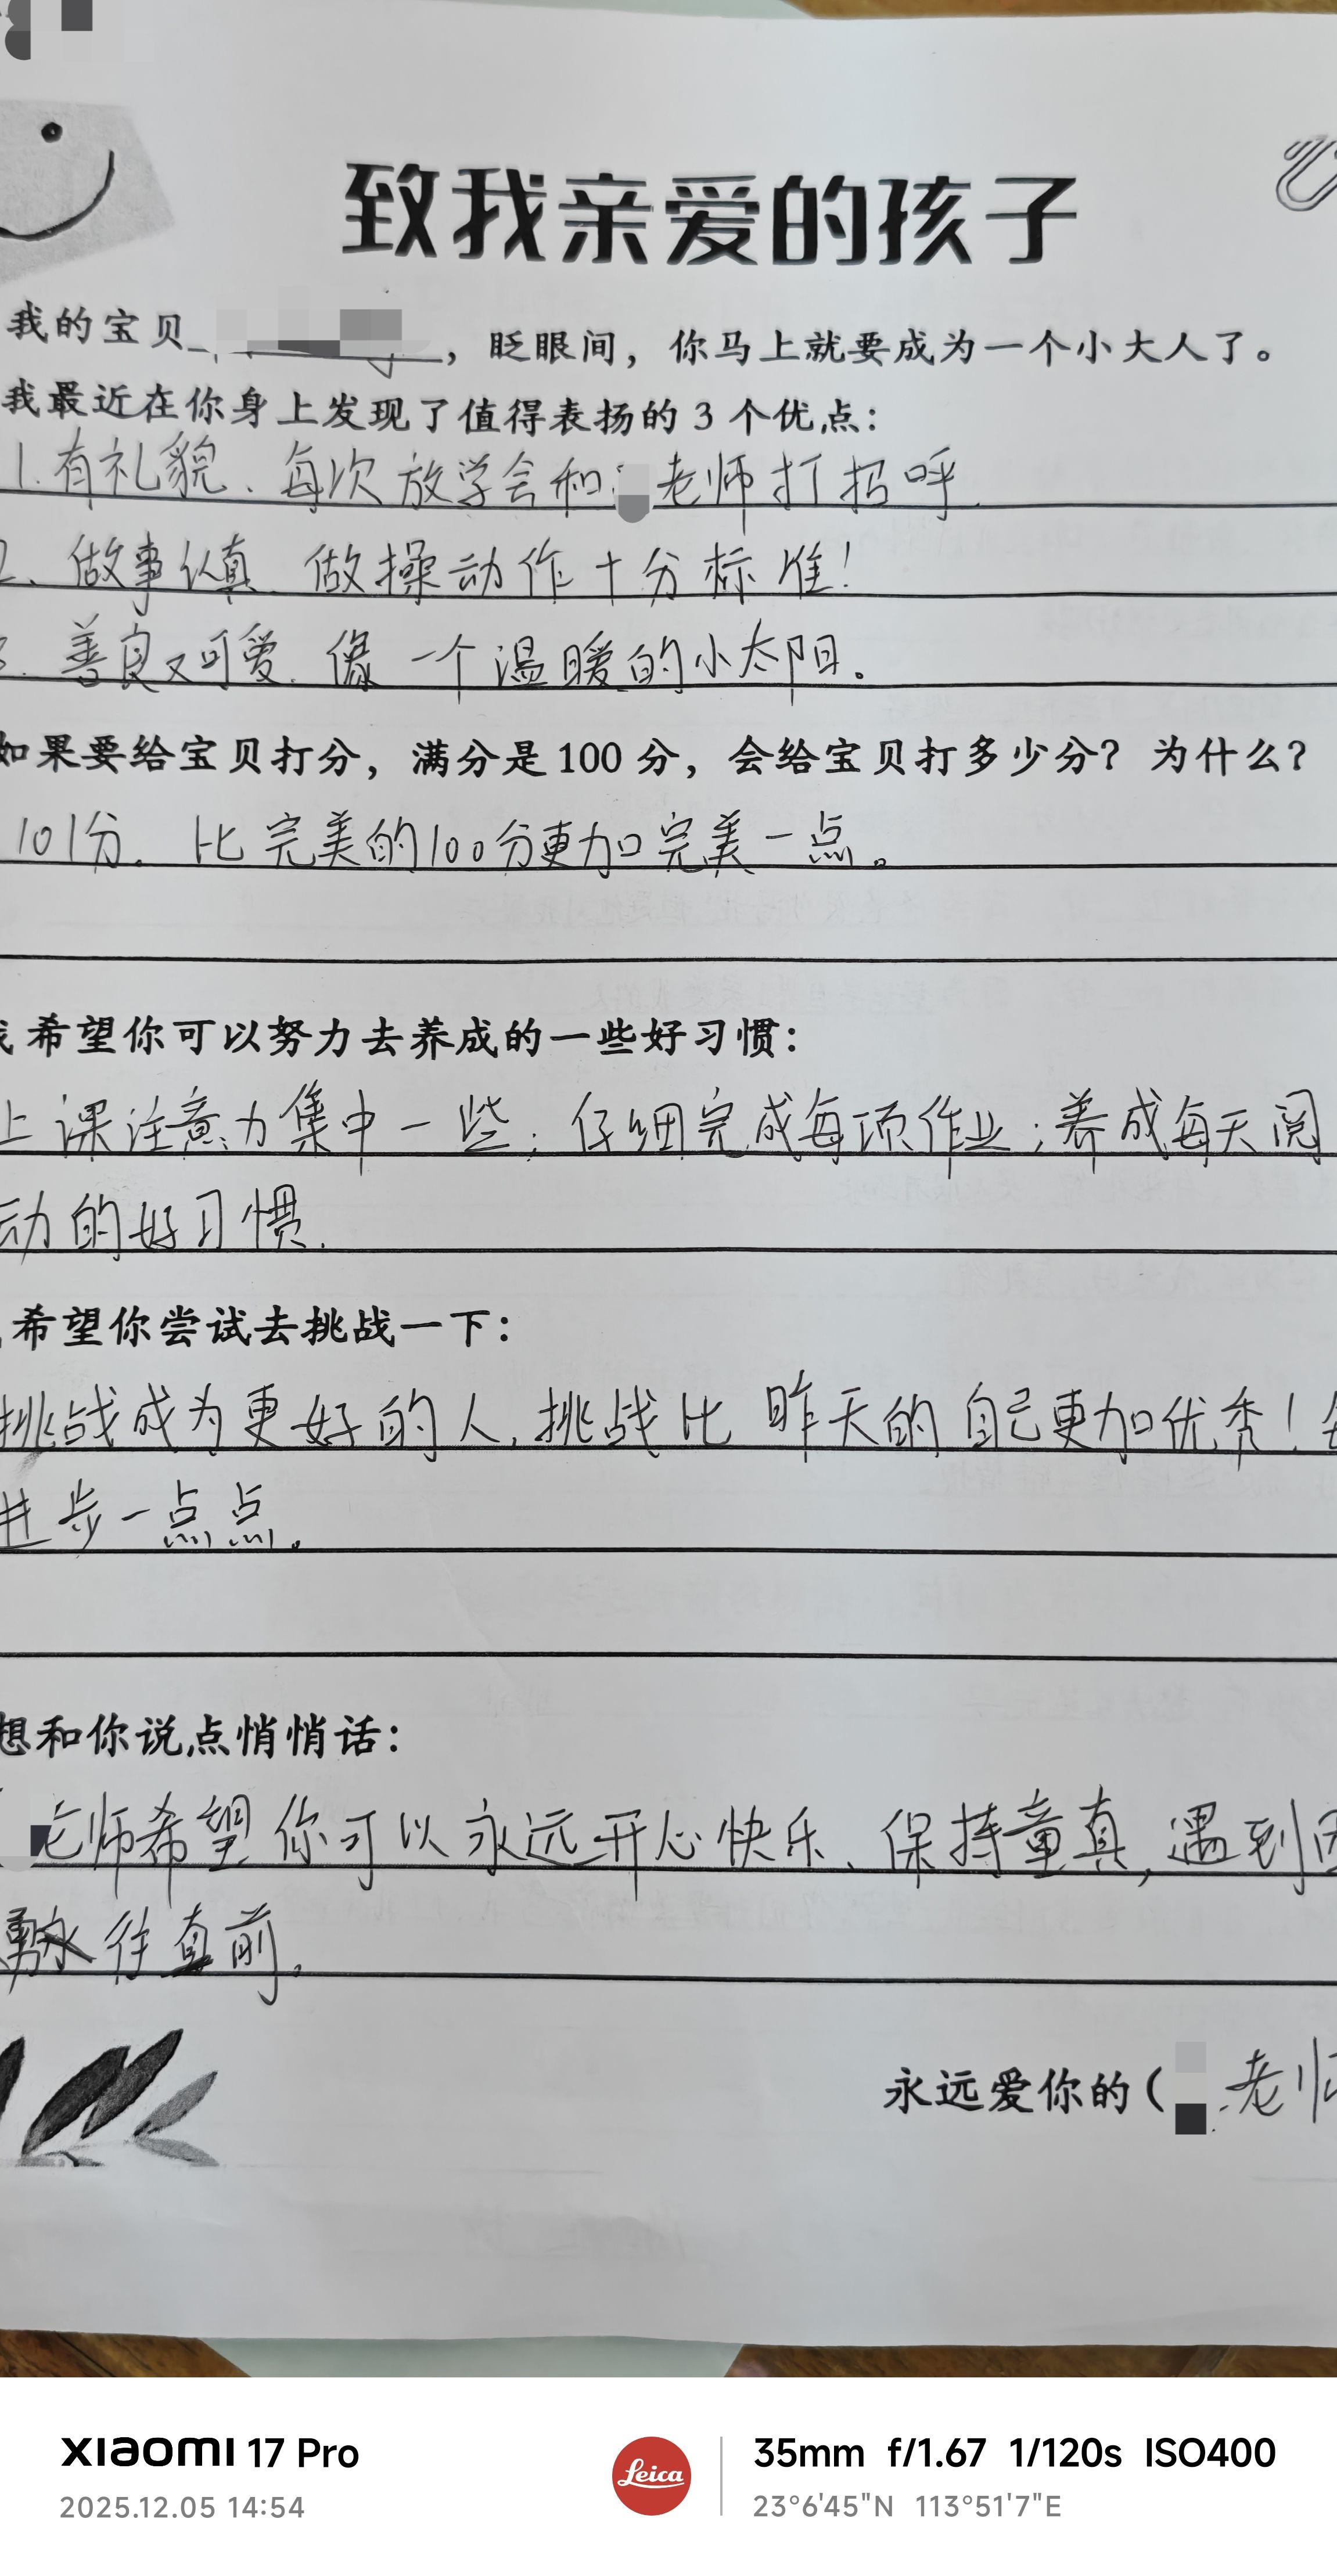 致我亲爱的孩子
我的宝贝，眨眼间，你马上就要成为一个小大人了。
我最近在你身上发现了值得表扬的3个优点：
1.有礼貌、每次放学会和老师打招呼.
2、做事认真、做操动作十分标准！
善良又可爱、像一个温暖的小太阳。
如果要给宝贝打分，满分是100分，会给宝贝打多少分？为什么？
101分。比完美的100分更加完美一点。
希望你可以努力去养成的一些好习惯：
上课注意力集中一些；仔细完成每项作业；养成每天阅
动的好习惯.
希望你尝试去挑战一下：
挑战成为更好的人，挑战比昨天的自己更加优秀！
进步一点点。
想和你说点悄悄话：
老师希望你可以永远开心快乐、保持童真，遇到
勇 往直前。
永远爱你的（老师
xiaomi 17 Pro
2025.12.05 14:54
Leica
35mm f/1.67 1/120s ISO400
23°6'45"N 113°51'7"E